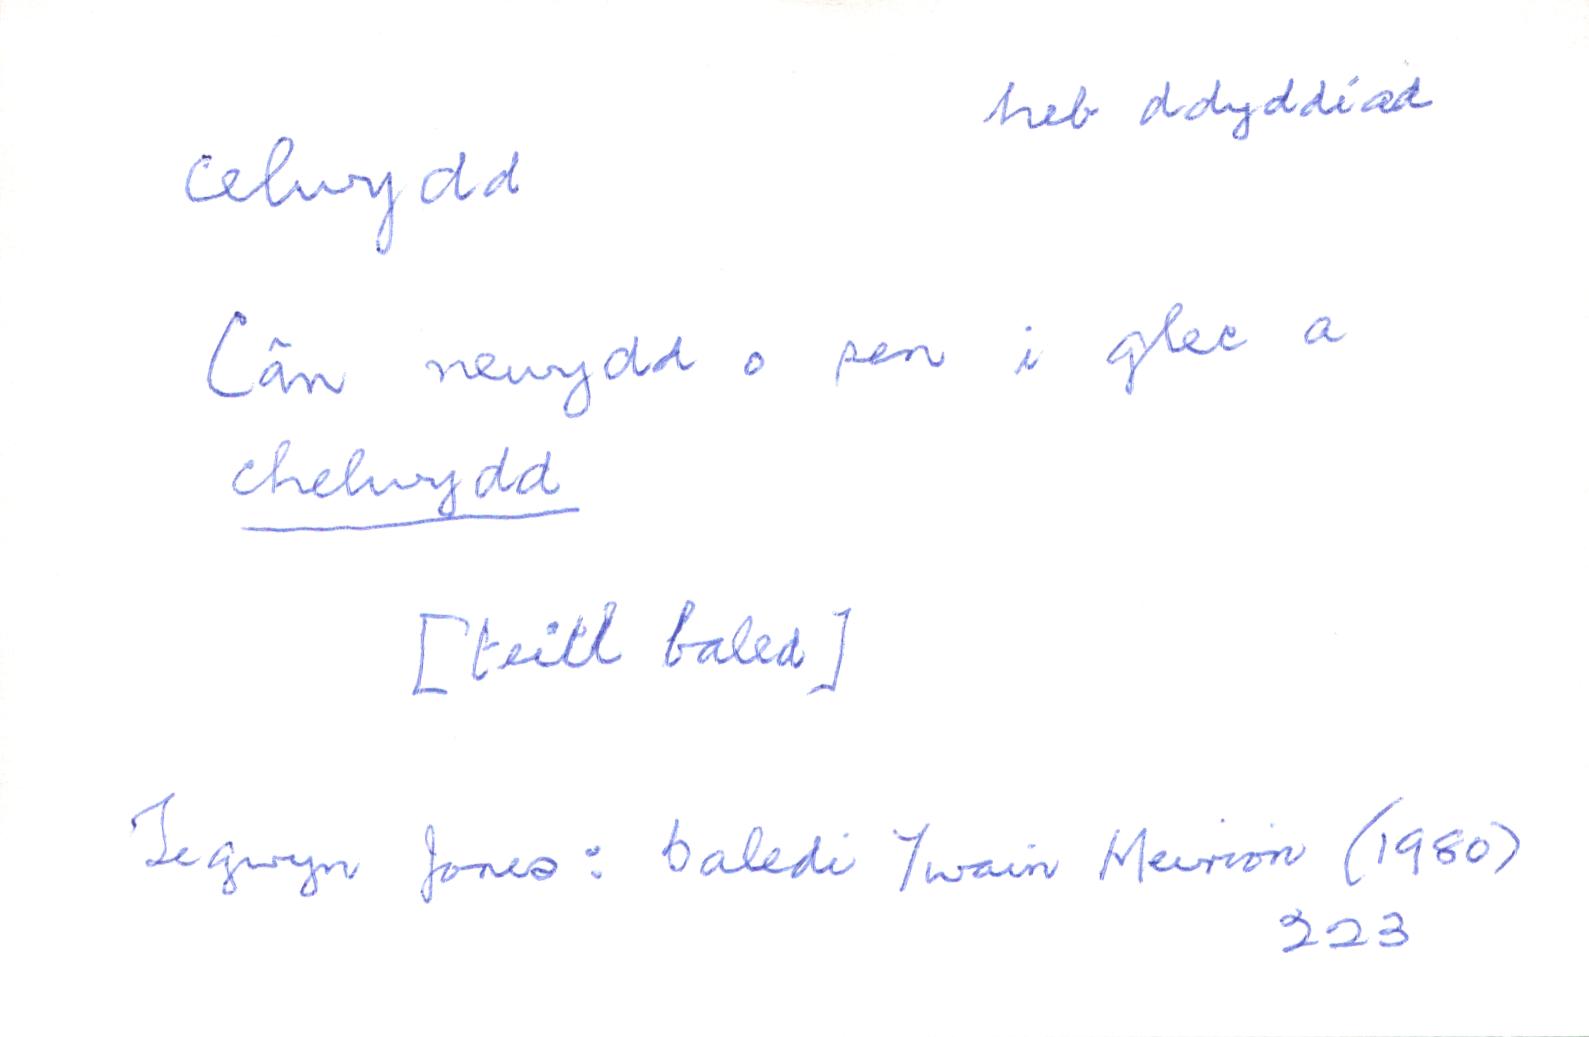 heb ddyddiad
celwydd
Cân newydd o sen i glec a
chelwydd
[teitl baled]
Tegwyn Jones: baledi Ywain Meirion (1980)
223